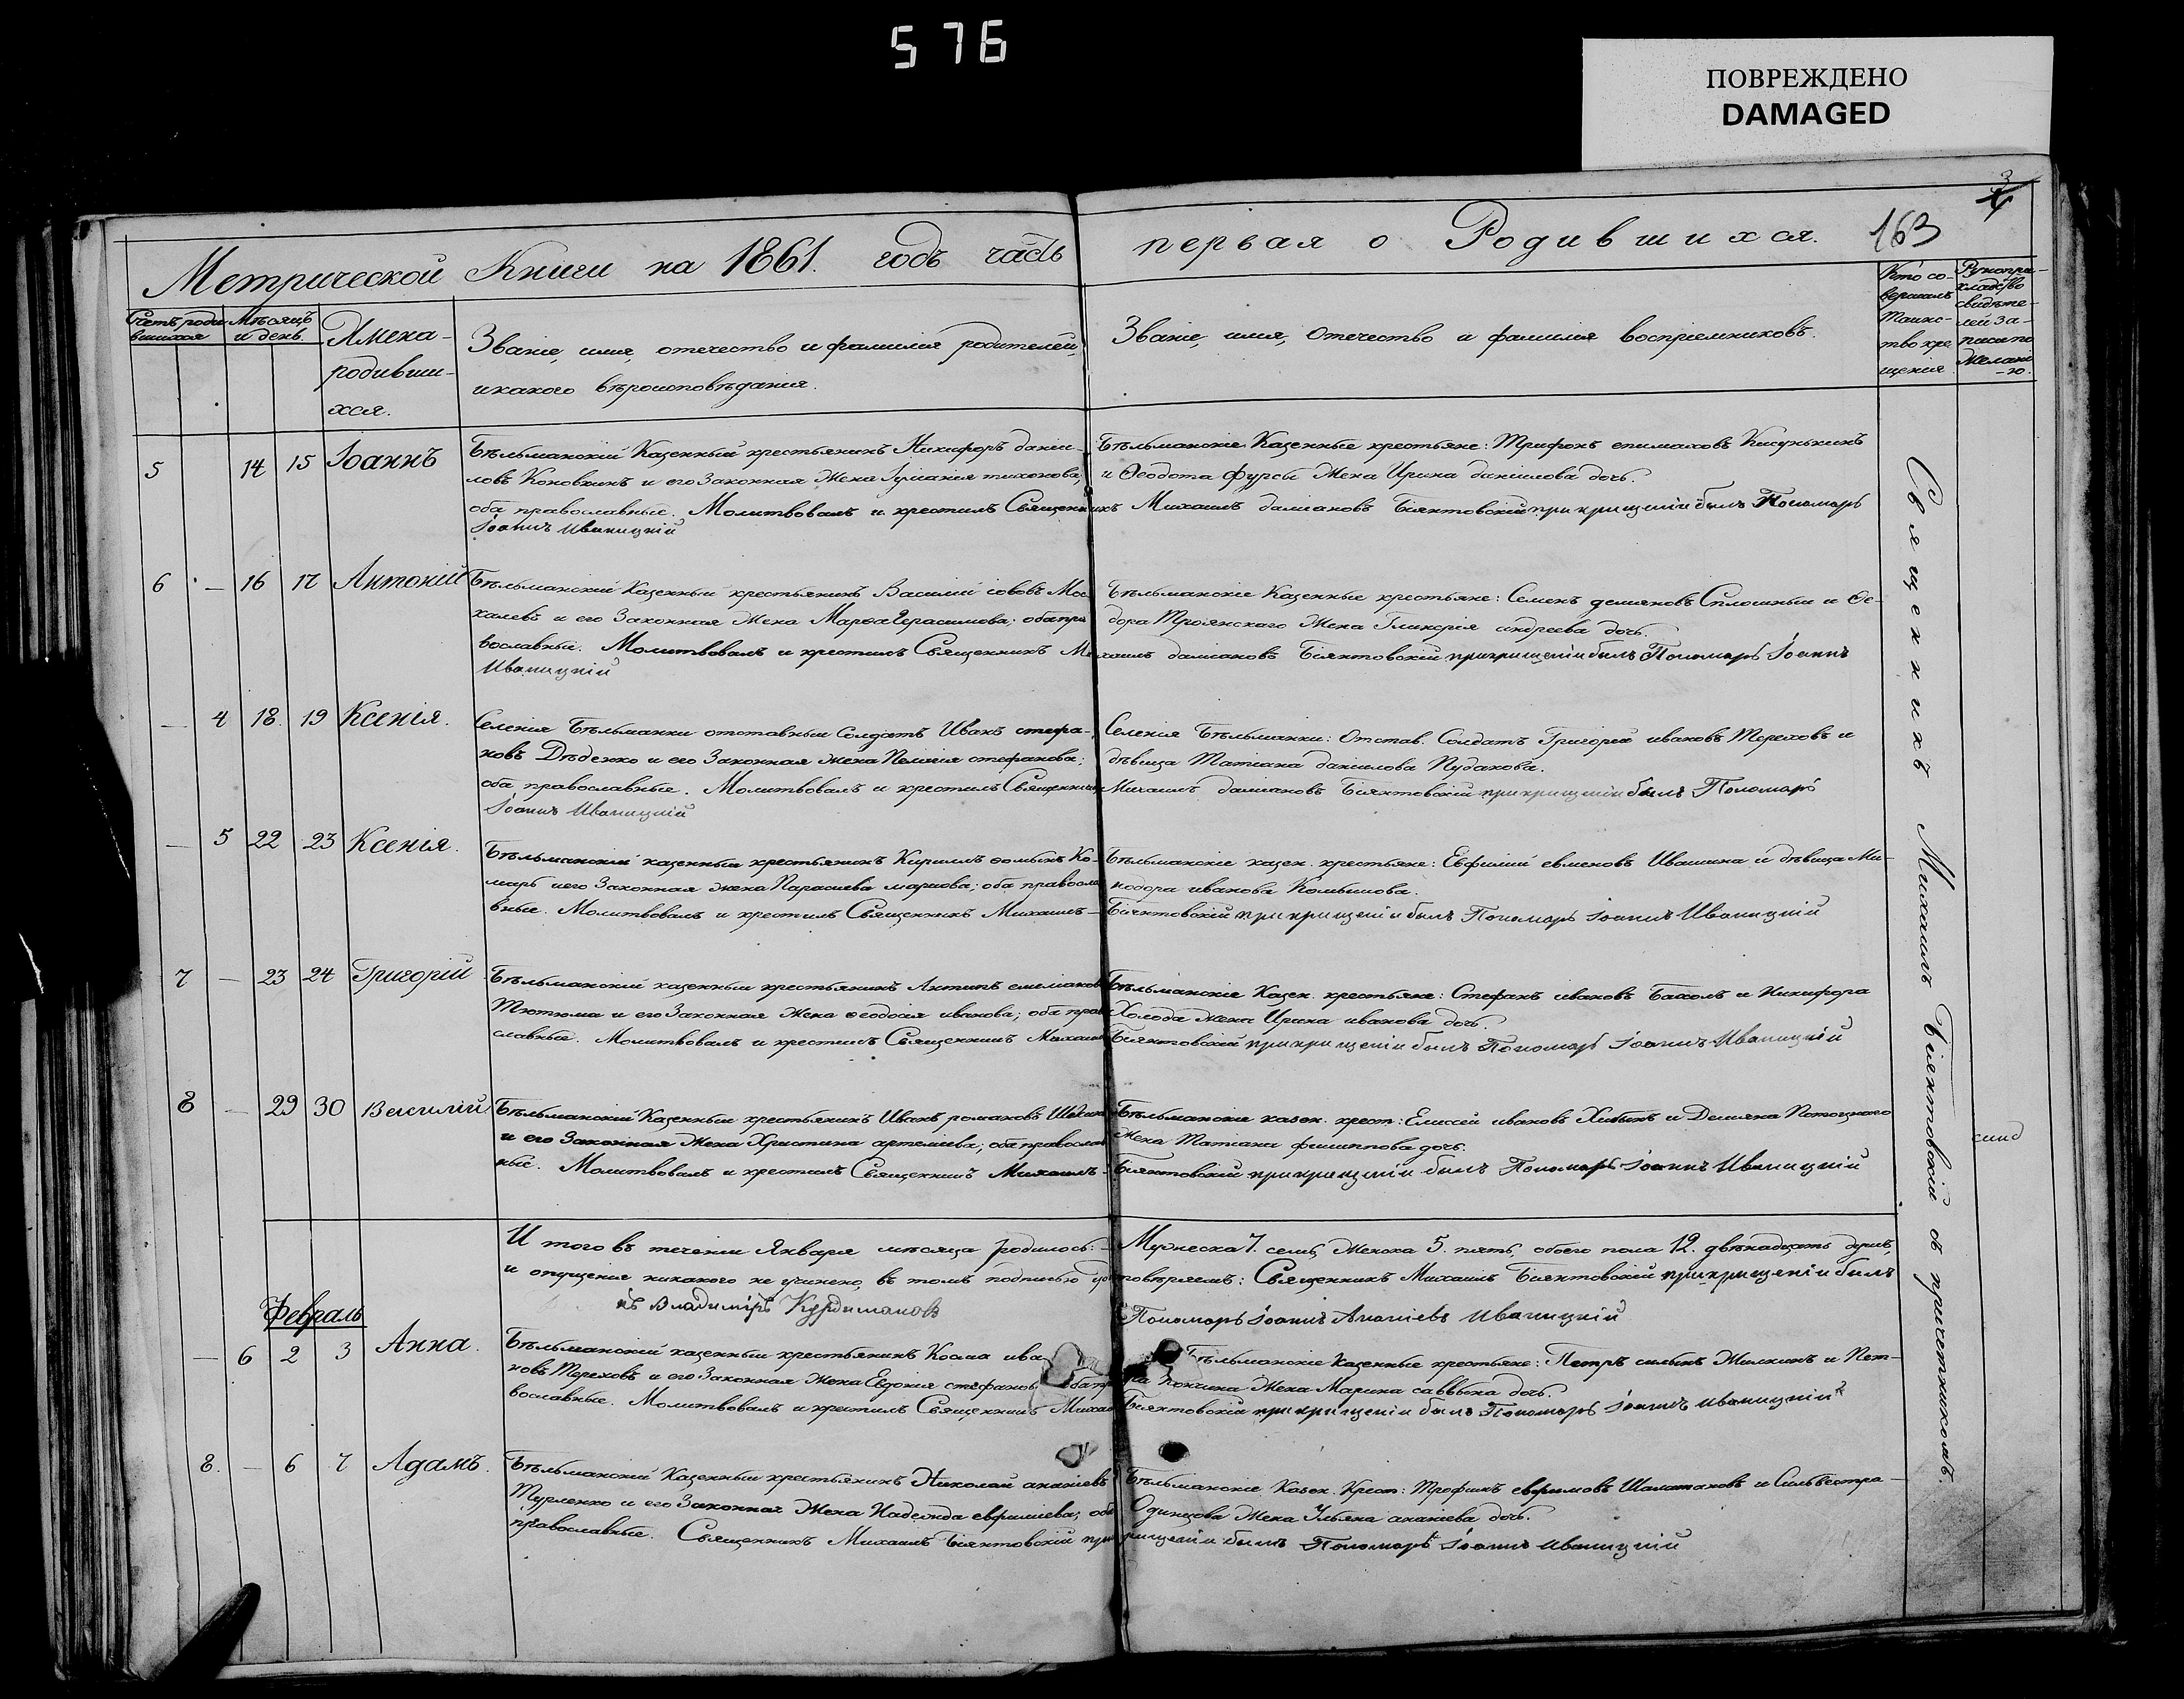 576
ПОВРЕЖДЕНО
DAMAGED
3
Метрической Книги на 1861. годъ часть первая о Родившихся. 163
Счетъ роди-
вшихся
Мѣсяцъ
и день.
Имена
родивши-
хся.
Званіе, имя, отечество и фамилія родителей,
и какого вѣроисповѣданія.
Званіе, имя, Отечество и фамилія воспріемниковъ.
Кто со-
вершалъ
таинс-
тво кре
щенія
Рукопри-
кладство
свидѣте-
лей за-
писи по
Желані
-ю.
5 14 15 Іоаннъ
Бѣльманскій Казенный крестьянинъ Никифоръ даніи-
ловъ Коновхинъ и его Законная Жена тихонова,
оба православные. Молитвовалъ и крестилъ Священникъ
Іоаннъ Иваницкій
Бѣльманскіе Казенные крестьяне: Трифонъ епимаховъ
и Ѳеодота фурсы Жена Ирина даніилова дочь.
Михаилъ даміановъ Біянтовскій при крищеніи былъ Пономарь
6 — 16 17 Антоній
Бѣльманскій Казенный крестьянинъ Василій іововъ Мос
калевъ и его Законная Жена Марѳа Герасимова; оба пра
вославные. Молитвовалъ и крестилъ Священникъ Ми
Иваницкій
Бѣльманскіе Казенные крестьяне: Семенъ деміяновъ Сплошный и Ѳе-
дора Троянскаго Жена Гликерія андреева дочь.
хаилъ даміановъ Біянтовскій при крищеніи былъ Пономарь Іоаннъ
— 4 18. 19 Ксенія.
Селенія Бѣльманки отставный Солдатъ Иванъ стефа-
новъ Дѣденко и его Законная жена Пелагія стефанова;
оба православные. Молитвовалъ и крестилъ Священникъ
Іоаннъ Иваницкій
Селенія Бѣльманки: Отстав. Солдатъ Григорій ивановъ Тереховъ и
дѣвица Татіана данилова Пудакова.
Михаилъ даміановъ Біянтовскій при крищеніи былъ Пономарь
— 5 22 23 Ксенія.
Бѣльманскій казенный крестьянинъ Кирилъ ѳоминъ Ко-
марь и его Законная жена Парасцева маркова; оба правосла
вные. Молитвовалъ и крестилъ Священникъ Михаилъ —
Бѣльманскіе казен. крестьяне: Евфимій евменовъ Ивашина и дѣвица Ми-
нодора иванова
Біянтовскій при крищеніи былъ Пономарь Іоаннъ Иваницкій
7 — 23 24 Григорій
Бѣльманскій казенный крестьянинъ Антипъ емеліанов
Тютюма и его Законная Жена ѳеодосія иванова; оба прав
славные. Молитвовалъ и крестилъ Священникъ Михаилъ
Бѣльманскіе Казен. крестьяне: Стефанъ ивановъ и Никифора
Холода Жена Ирина иванова дочь.
Біянтовскій при крищеніи былъ Пономарь Іоаннъ Иваницкій
8 — 29 30 Василій
Бѣльманскій Казенный крестьянинъ Иванъ романовъ
и его Законная Жена Христина артеміева; оба правосла
ные. Молитвовалъ и крестилъ Священникъ Михаилъ —
Бѣльманскіе казен. крест: Елисей ивановъ и Деміяна Потоцкаго
Жена Татіана филиппова дочь.
Біянтовскій при крищеніи былъ Пономарь Іоаннъ Иваницкій
И того въ теченіи Января мѣсяца родилось: —
и опущенія никакого не учинено, въ томъ подписью удо
Владиміръ Курдимановъ
Мужеска 7. семь, Женска 5. пять, обоего пола 12. двѣнадцать душъ,
стовѣряемъ: Священникъ Михаилъ Біянтовскій при крищеніи былъ
Пономарь Іоаннъ Ананіевъ Иваницкій
Февраль
— 6 2 3 Анна.
Бѣльманскій казенный крестьянинъ Косма ива
новъ Тереховъ и его Законная Жена Евдокія стефанов оба пр
вославные. Молитвовалъ и крестилъ Священникъ Михаи
Бѣльманскіе казенные крестьяне: Петръ силинъ Жилкинъ и Пет-
ра Жена Марина саввина дочь.
Біянтовскій при крищеніи былъ Пономарь Іоаннъ Иваницкій
8. — 6 7 Адамъ.
Бѣльманскій Казенный крестьянинъ Николай ананіевъ
Турленко и его Законная Жена Надежда евфиміева; оба
православные. Священникъ Михаилъ Біянтовскій при
Бѣльманскіе Казен. Крест: Трофимъ ефимовъ Шаматановъ и Сильвестра
Одинцова Жена Ульяна ананіева дочь.
крищеніи былъ Пономарь Іоаннъ Иваницкій
Священникъ Михаилъ Біянтовскій съ причетникомъ